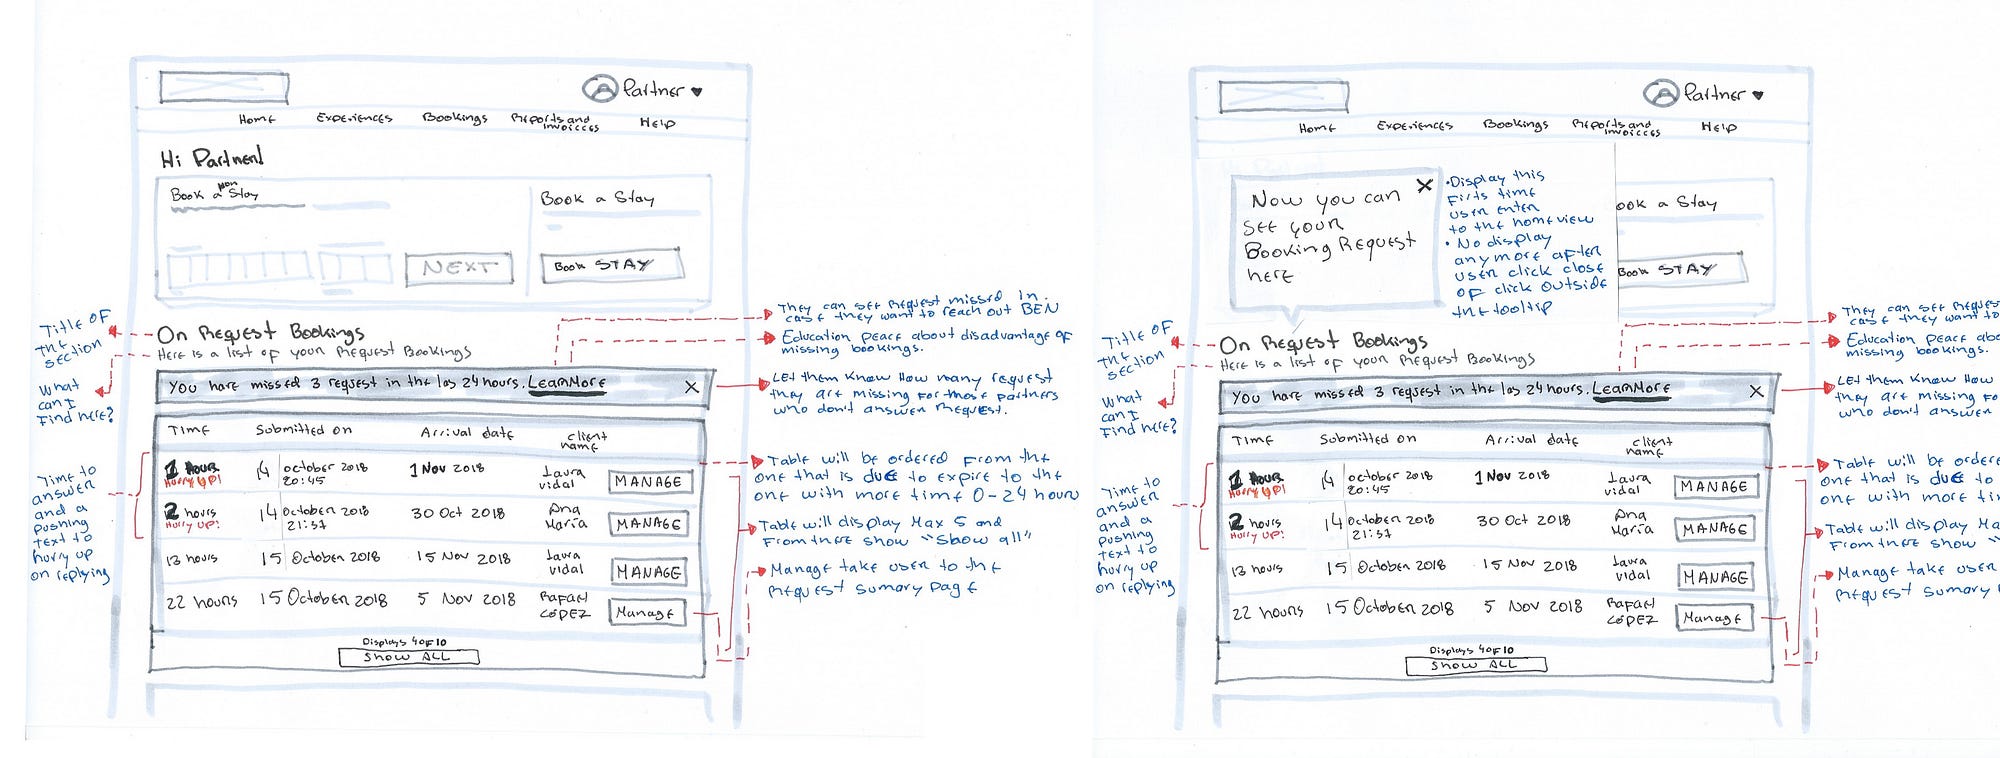 Partner
Home Experiences Bookings Reports and invoicces Help
Hi Partner!
Book a Non Stay
Book a Stay
NEXT
Book STAY
On Request Bookings
Here is a list of your Request Bookings
You have missed 3 request in the las 24 hours. Learn More X
Time Submitted on Arrival date client name
1 Hour 14 october 2018 1 Nov 2018 Laura MANAGE
Hurry UP! 20:45 vidal
2 hours 14 October 2018 30 Oct 2018 Ana MANAGE
Hurry UP! 21:57 Maria
13 hours 15 October 2018 15 Nov 2018 Laura MANAGE
vidal
22 hours 15 October 2018 5 Nov 2018 Rafael Manage
LÓPEZ
Displays 4 of 10
Show ALL
Title of
the
section
What
can I
Find here?
Time to
answer
and a
pushing
text to
hurry up
on replying
They can see Request missed in
case they want to reach out BEN
Education peace about disadvantage of
missing bookings.
Let them know How many request
they are missing for those partners
who don't answer Request.
Table will be ordered from the
one that is due to expire to the
one with more time 0-24 hours
Table will display Max 5 and
From there show "Show all"
Manage take user to the
Request sumary page
Partner
Home Experiences Bookings Reports and invoicces Help
Now you can X
see your
Booking Request
here
• Display this
firts time
user enter
to the homeview
• No display
anymore after
user click close
of click outside
the tooltip
ook a Stay
Book STAY
On Request Bookings
Here is a list of your Request Bookings
You have missed 3 request in the las 24 hours. Learn More X
Time Submitted on Arrival date client name
1 Hour 14 october 2018 1 Nov 2018 Laura MANAGE
Hurry UP! 20:45 vidal
2 hours 14 October 2018 30 Oct 2018 Ana MANAGE
Hurry UP! 21:57 Maria
13 hours 15 October 2018 15 Nov 2018 Laura MANAGE
vidal
22 hours 15 October 2018 5 Nov 2018 Rafael Manage
LÓPEZ
Displays 4 of 10
Show ALL
Title of
the
section
What
can I
Find here?
Time to
answer
and a
pushing
text to
hurry up
on replying
They can see Reques
case they want to
Education peace abo
missing bookings.
Let them know How
they are missing fo
who don't answer
Table will be ordere
one that is due to
one with more ti
Table will display Ma
From there show "
Manage take user
Request sumary